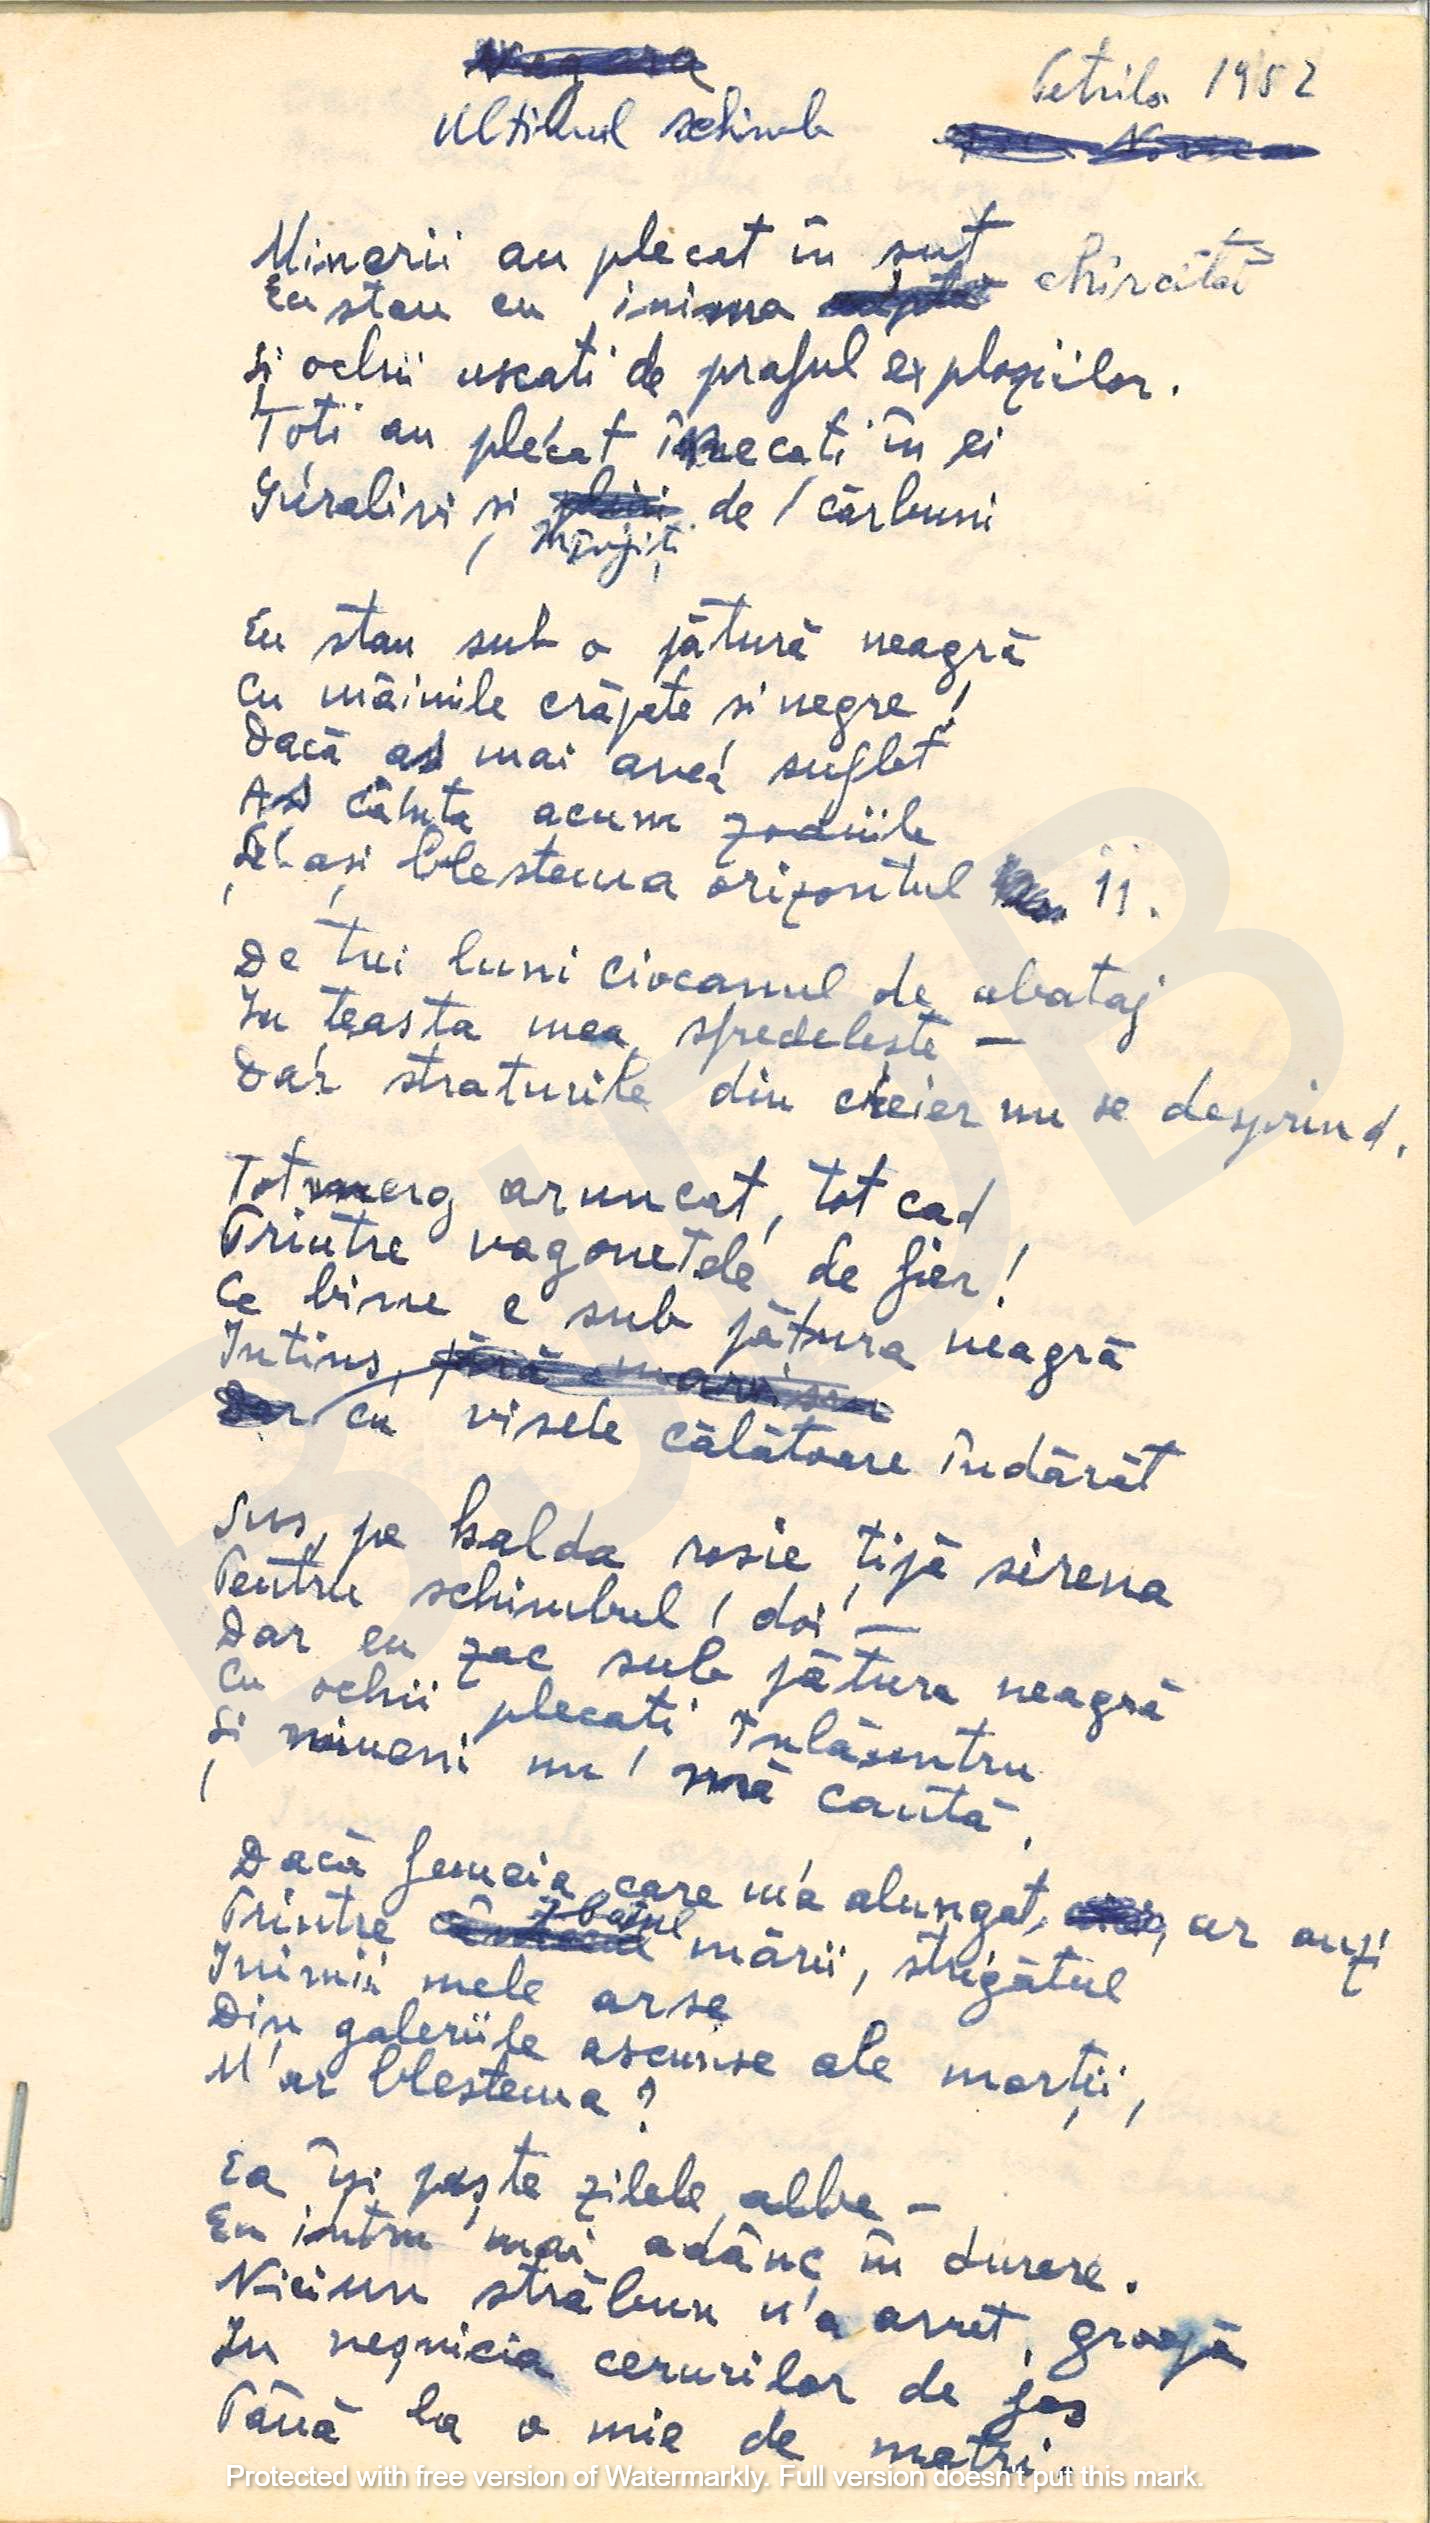 Negara
Petrila 1952
Ultimul schimb
Minerii au plecat în șut
Eu stau cu inima chircită
Și ochii uscati de praful exploziilor.
Toți au plecat înecați în ei
Guralivi și mînjiți de cărbuni
Eu stau sub o pătură neagră
Cu mâinile crăpate și negre!
Dacă aș mai avea suflet
Aș căuta acum zodiile
Și-ași blestema orizontul 11.
De trei luni ciocanul de abataj
In țeasta mea sfredelește —
Dar straturile din creier nu se desprind.
Tot merg aruncat, tot cad
Printre vagonetele de fier!
Ce bine e sub pătura neagră
Intins, fără
cu visele călătoare îndărăt
Sus, pe halda roșie țipă sirena
Pentru schimbul doi —
Dar eu zac sub pătura neagră
Cu ochii plecați înlăuntru
Și nimeni nu mă caută.
Dacă femeia care m'a alungat, ar auzi
Printre zbațul mării, strigătul
Inimii mele arse
Din galeriile ascunse ale morții,
M'ar blestema?
Ea își paște zilele albe —
Eu intru mai adânc în durere.
Niciun străbun n'a avut groapă
In veșnicia cerurilor de jos
Până la o mie de metri.
BUDB
Protected with free version of Watermarkly. Full version doesn't put this mark.